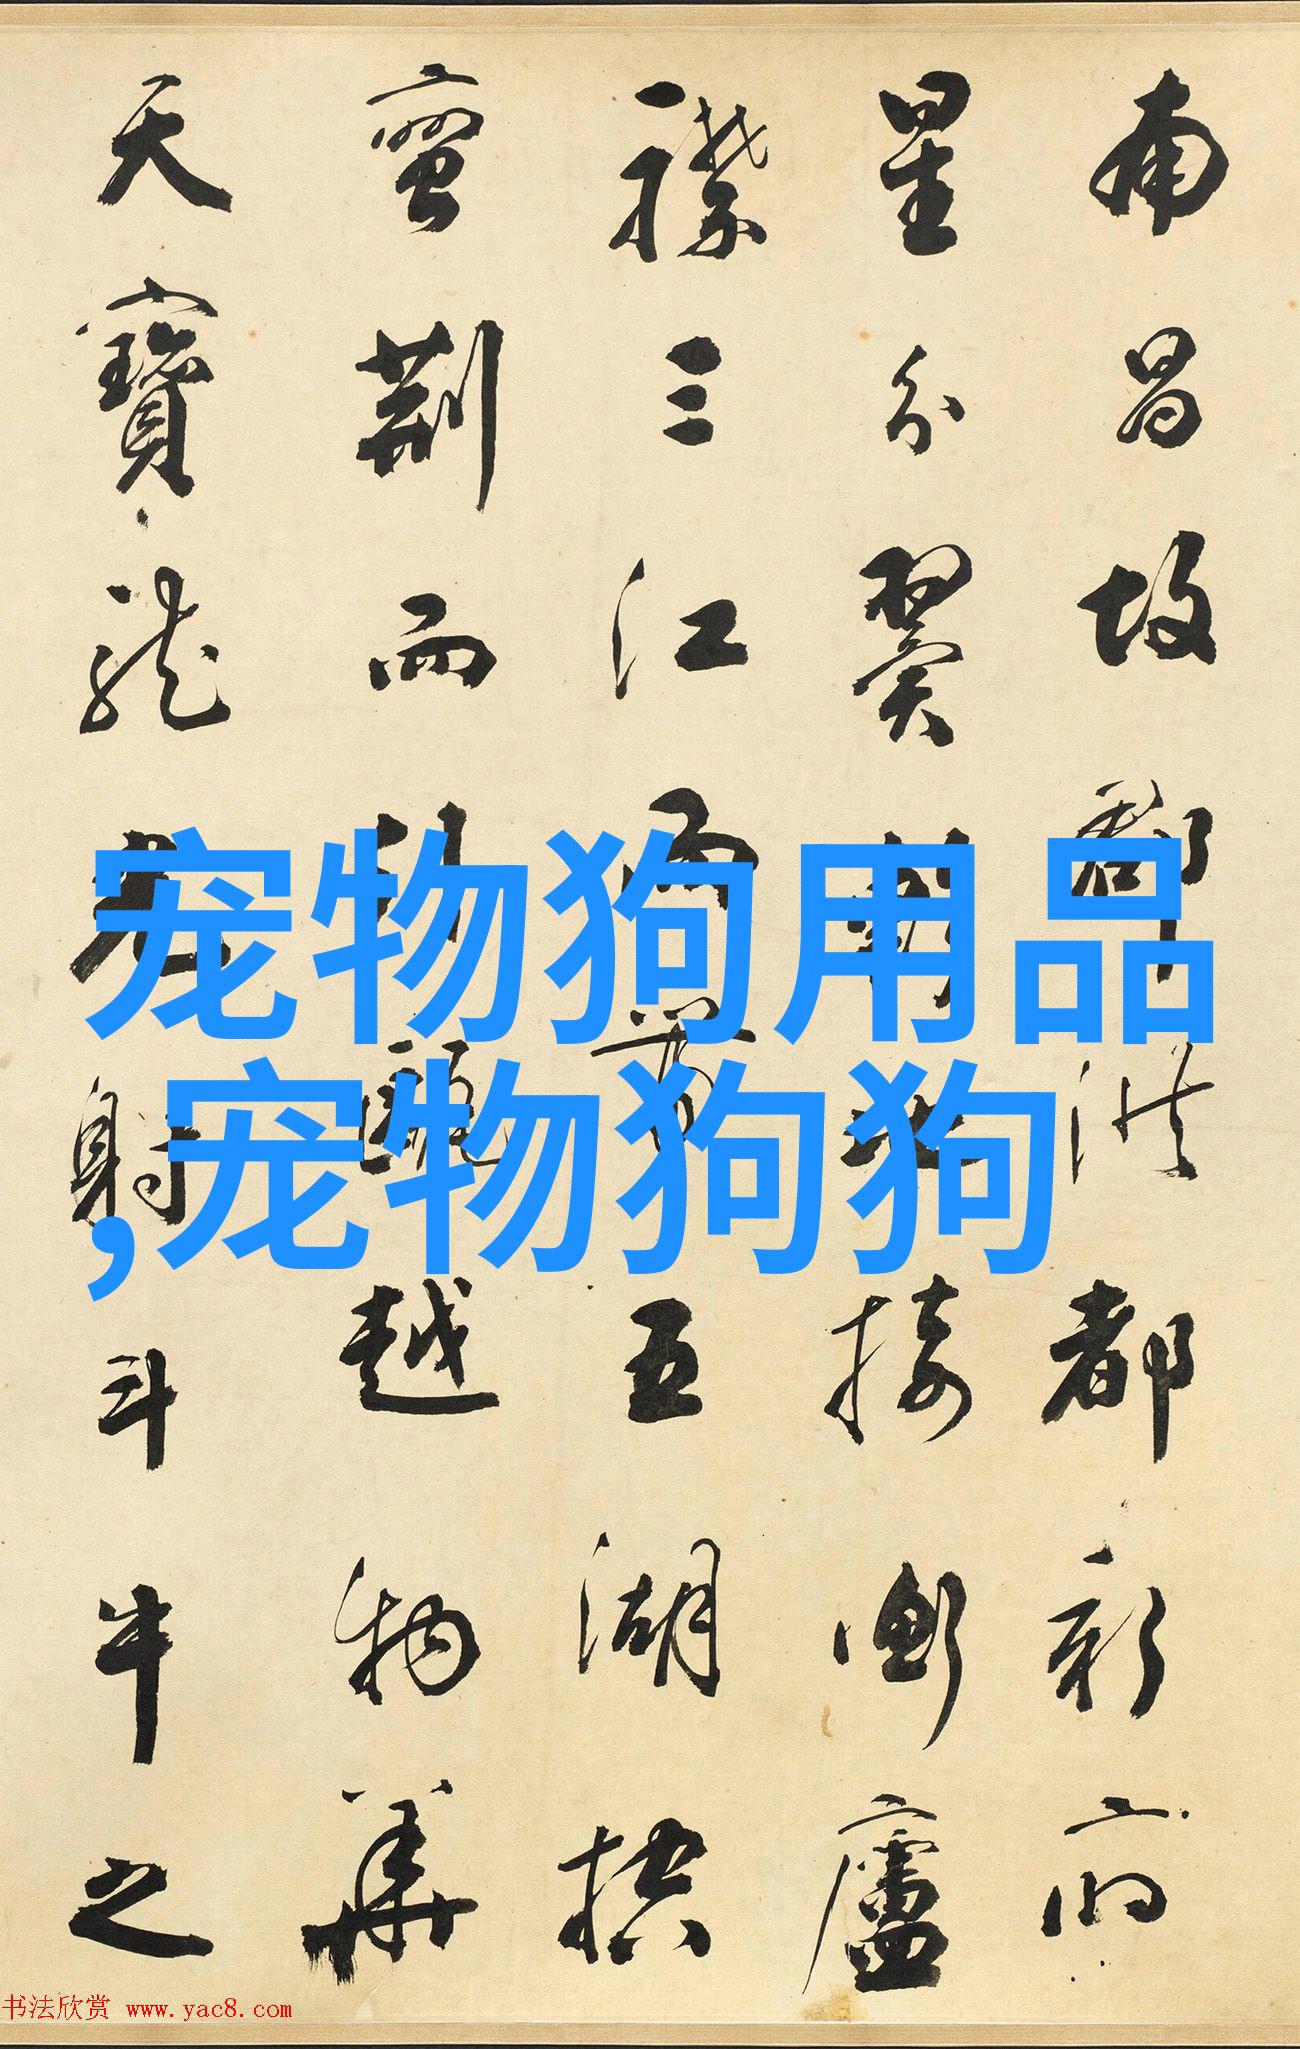 南昌故郡洪都新府
星分翼軫地接衡廬
襟三江而帶五湖控
蠻荊而引甌越物華
天寶龍光射斗牛之
宠物狗用品
,宠物狗狗
书法欣赏 www.yac8.com